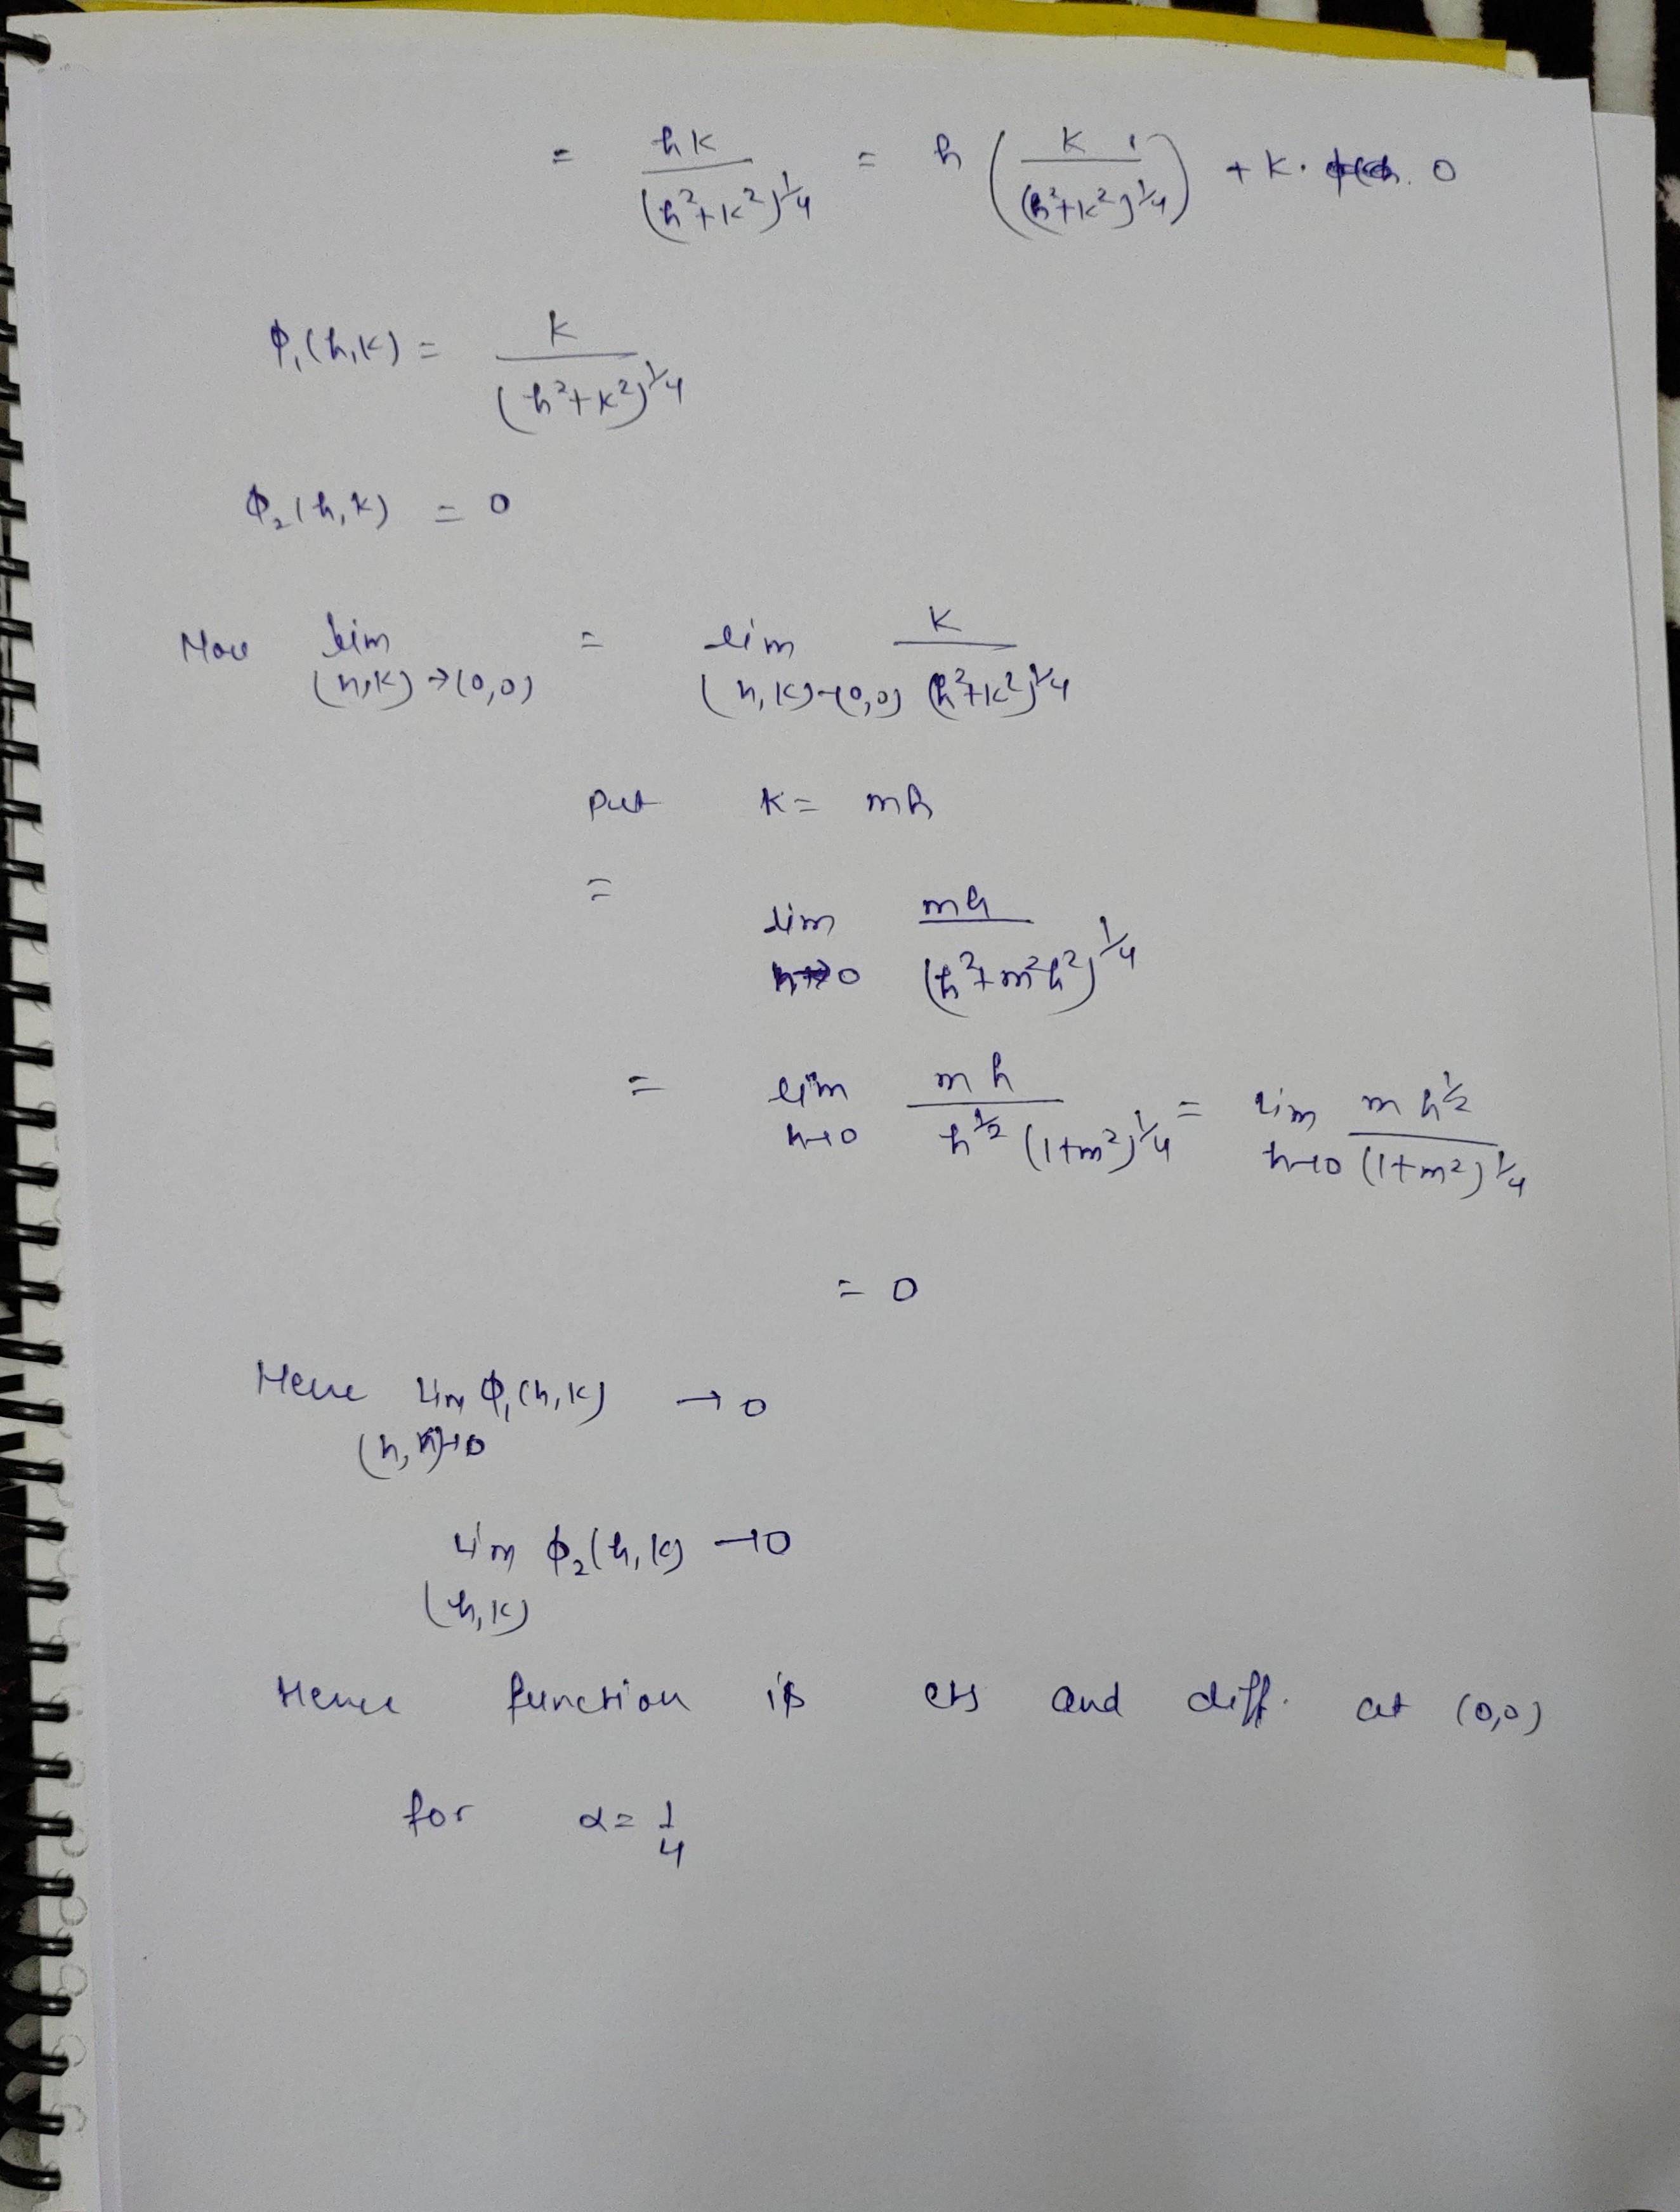 = hk/(h²+k²)^1/4 = h (k/(h²+k²)^1/4) + k. 0
φ₁(h,k) = k/(h²+k²)^1/4
φ₂(h,k) = 0
Now lim (h,k)→(0,0) = lim (h,k)→(0,0) k/(h²+k²)^1/4
put k = mh
= lim h→0 mh/(h²+m²h²)^1/4
= lim h→0 mh/h^1/2 (1+m²)^1/4 = lim h→0 m h^1/2/(1+m²)^1/4
= 0
Hence lim φ₁(h,k) → 0
(h,k)→0
lim φ₂(h,k) → 0
(h,k)
Hence function is cts and diff. at (0,0)
for α = 1/4